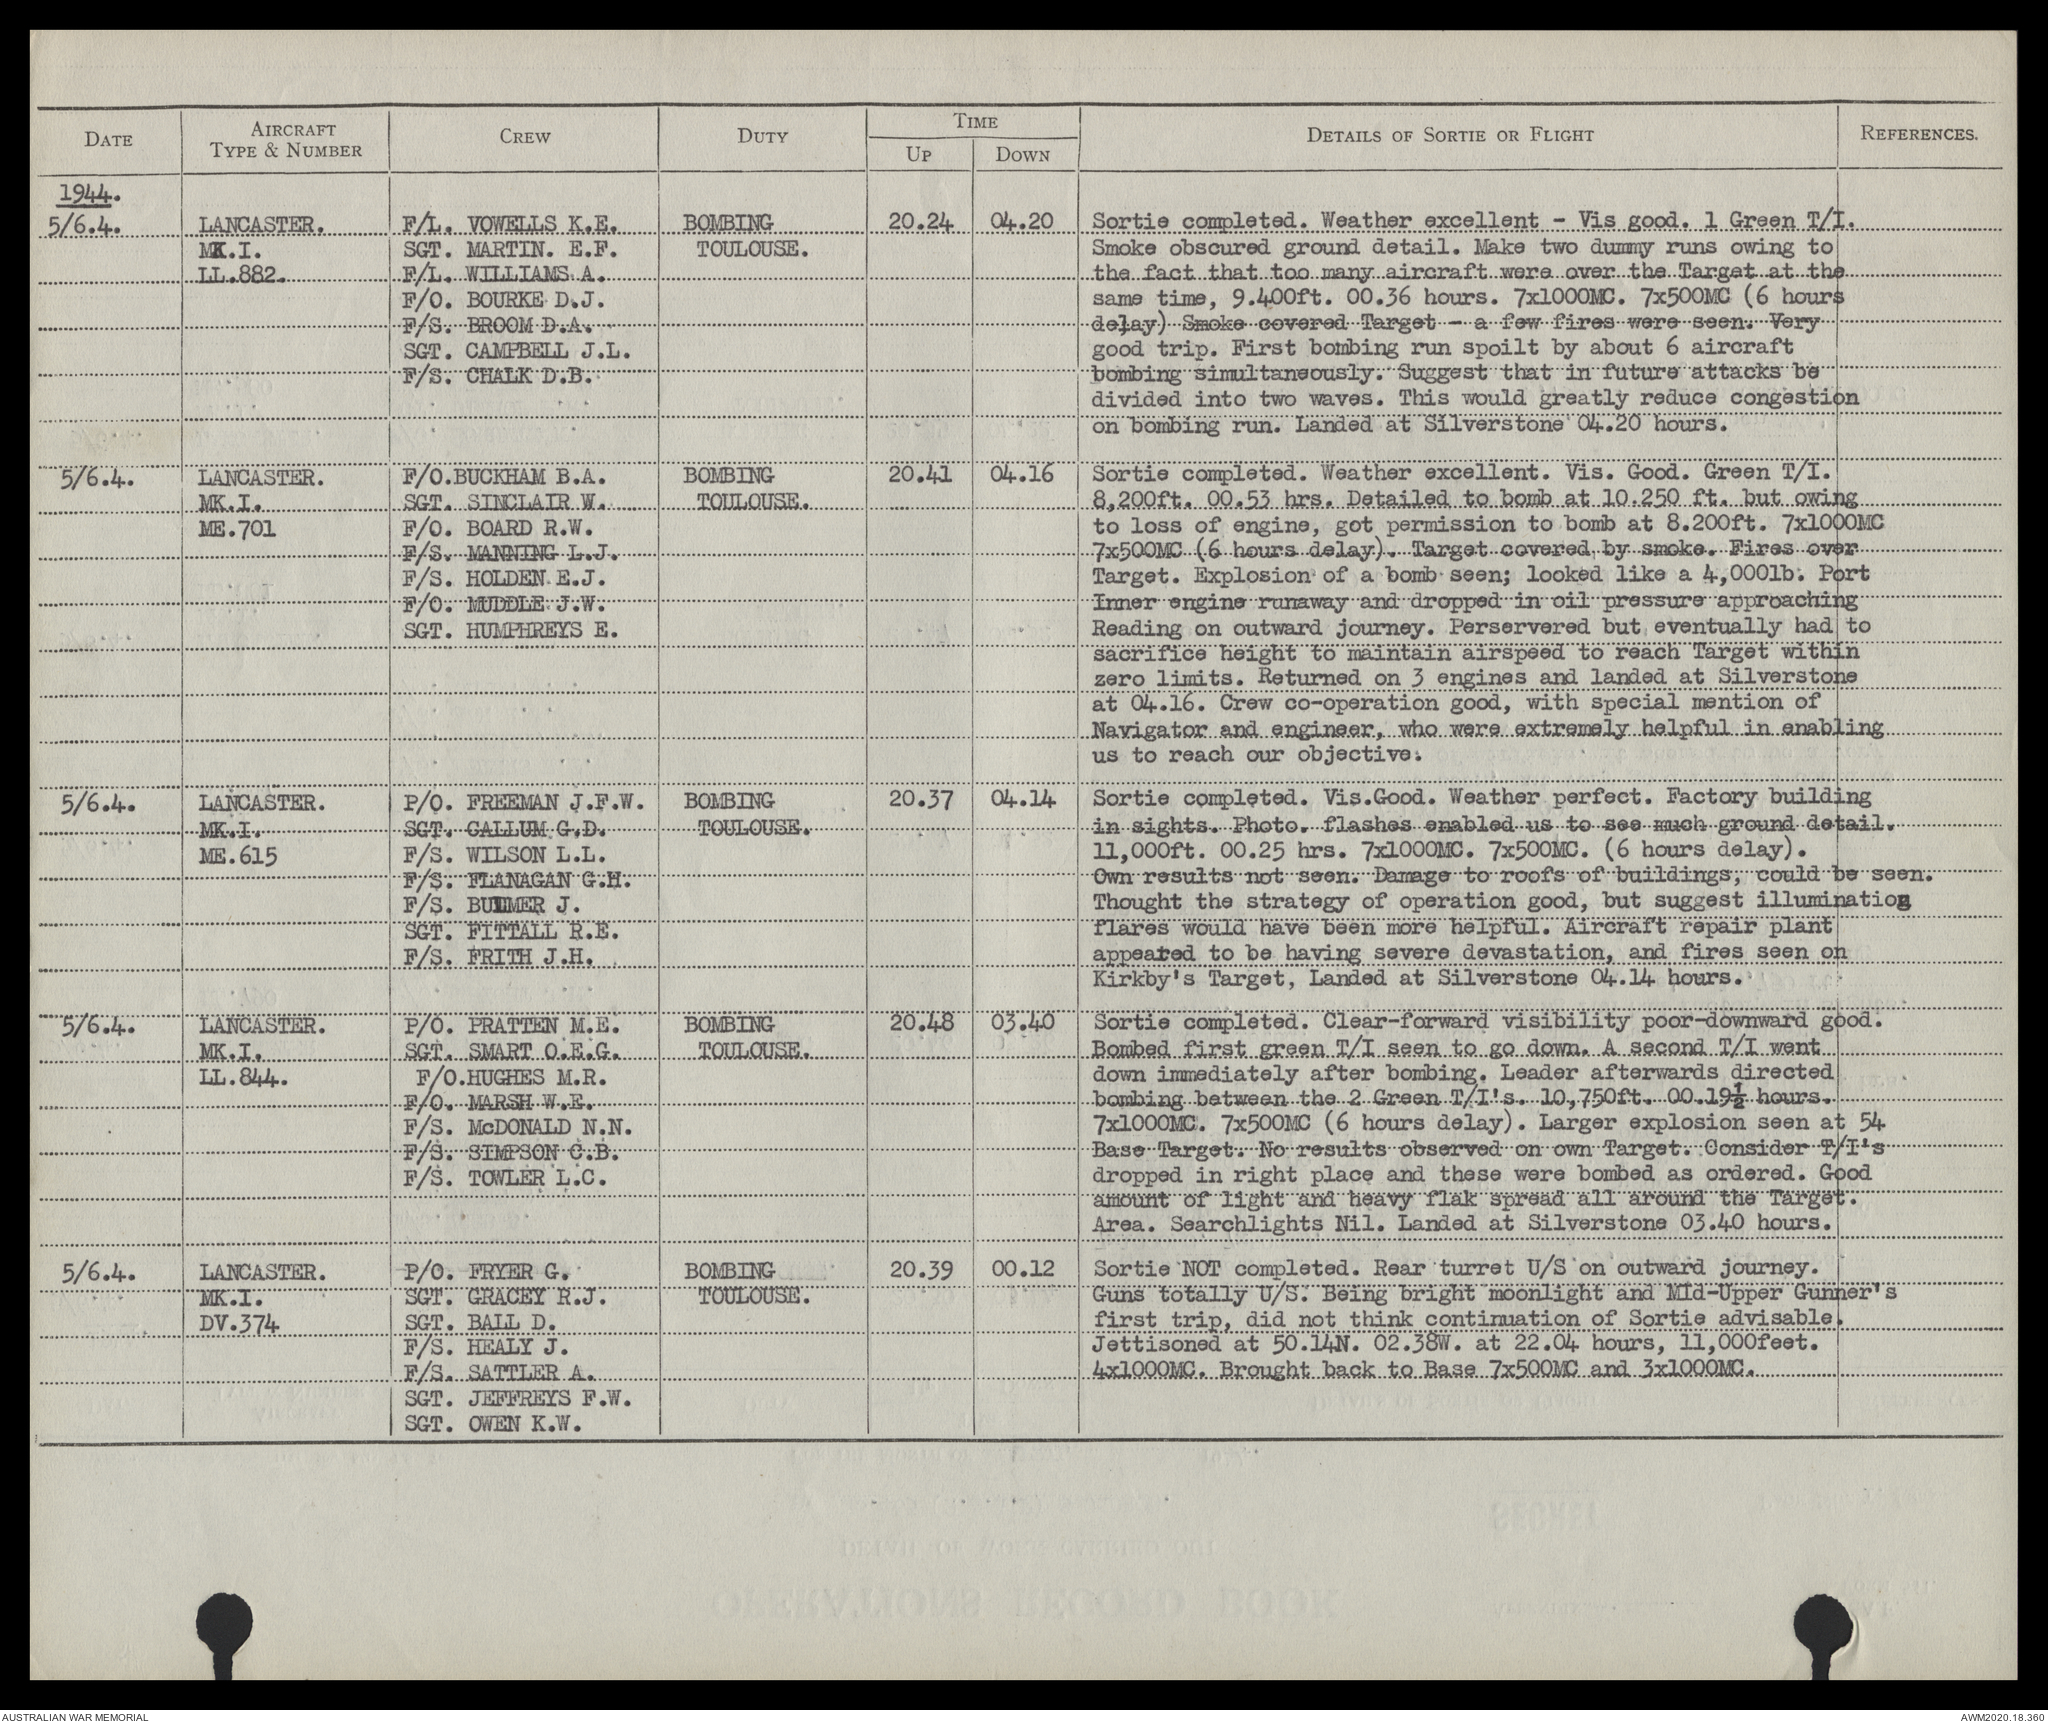 DATE AIRCRAFT TYPE & NUMBER CREW DUTY TIME UP DOWN DETAILS OF SORTIE OR FLIGHT REFERENCES.
1944.
5/6.4. LANCASTER. F/L. VOWELLS K.E. BOMBING 20.24 04.20 Sortie completed. Weather excellent - Vis good. 1 Green T/I.
MK.I. SGT. MARTIN. E.F. TOULOUSE. Smoke obscured ground detail. Make two dummy runs owing to
LL.882. F/L. WILLIAMS A. the fact that too many aircraft were over the Target at the
F/O. BOURKE D.J. same time, 9.400ft. 00.36 hours. 7x1000MC. 7x500MC (6 hours
F/S. BROOM D.A. delay) Smoke covered Target - a few fires were seen. Very
SGT. CAMPBELL J.L. good trip. First bombing run spoilt by about 6 aircraft
F/S. CHALK D.B. bombing simultaneously. Suggest that in future attacks be
divided into two waves. This would greatly reduce congestion
on bombing run. Landed at Silverstone 04.20 hours.
5/6.4. LANCASTER. F/O.BUCKHAM B.A. BOMBING 20.41 04.16 Sortie completed. Weather excellent. Vis. Good. Green T/I.
MK.I. SGT. SINCLAIR W. TOULOUSE. 8,200ft. 00.53 hrs. Detailed to bomb at 10.250 ft. but owing
ME.701 F/O. BOARD R.W. to loss of engine, got permission to bomb at 8.200ft. 7x1000MC
F/S. MANNING L.J. 7x500MC (6 hours delay). Target covered by smoke. Fires over
F/S. HOLDEN E.J. Target. Explosion of a bomb seen; looked like a 4,000lb. Port
F/O. MUDDLE J.W. Inner engine runaway and dropped in oil pressure approaching
SGT. HUMPHREYS E. Reading on outward journey. Perservered but eventually had to
sacrifice height to maintain airspeed to reach Target within
zero limits. Returned on 3 engines and landed at Silverstone
at 04.16. Crew co-operation good, with special mention of
Navigator and engineer, who were extremely helpful in enabling
us to reach our objective.
5/6.4. LANCASTER. P/O. FREEMAN J.F.W. BOMBING 20.37 04.14 Sortie completed. Vis.Good. Weather perfect. Factory building
MK.I. SGT. CALLUM G.D. TOULOUSE. in sights. Photo. flashes enabled us to see much ground detail.
ME.615 F/S. WILSON L.L. 11,000ft. 00.25 hrs. 7x1000MC. 7x500MC. (6 hours delay).
F/S. FLANAGAN G.H. Own results not seen. Damage to roofs of buildings, could be seen.
F/S. BULMER J. Thought the strategy of operation good, but suggest illumination
SGT. FITTALL R.E. flares would have been more helpful. Aircraft repair plant
F/S. FRITH J.H. appeared to be having severe devastation, and fires seen on
Kirkby's Target, Landed at Silverstone 04.14 hours.
5/6.4. LANCASTER. P/O. PRATTEN M.E. BOMBING 20.48 03.40 Sortie completed. Clear-forward visibility poor-downward good.
MK.I. SGT. SMART O.E.G. TOULOUSE. Bombed first green T/I seen to go down. A second T/I went
LL.844. F/O.HUGHES M.R. down immediately after bombing. Leader afterwards directed
F/O. MARSH W.E. bombing between the 2 Green T/I's. 10,750ft. 00.19½ hours.
F/S. McDONALD N.N. 7x1000MC. 7x500MC (6 hours delay). Larger explosion seen at 54
F/S. SIMPSON C.B. Base Target. No results observed on own Target. Consider T/I's
F/S. TOWLER L.C. dropped in right place and these were bombed as ordered. Good
amount of light and heavy flak spread all around the Target.
Area. Searchlights Nil. Landed at Silverstone 03.40 hours.
5/6.4. LANCASTER. P/O. FRYER G. BOMBING 20.39 00.12 Sortie NOT completed. Rear turret U/S on outward journey.
MK.I. SGT. GRACEY R.J. TOULOUSE. Guns totally U/S. Being bright moonlight and MId-Upper Gunner's
DV.374 SGT. BALL D. first trip, did not think continuation of Sortie advisable.
F/S. HEALY J. Jettisoned at 50.14N. 02.38W. at 22.04 hours, 11,000feet.
F/S. SATTLER A. 4x1000MC. Brought back to Base 7x500MC and 3x1000MC.
SGT. JEFFREYS F.W.
SGT. OWEN K.W.
OPERATIONS RECORD BOOK
AUSTRALIAN WAR MEMORIAL AWM2020.18.360